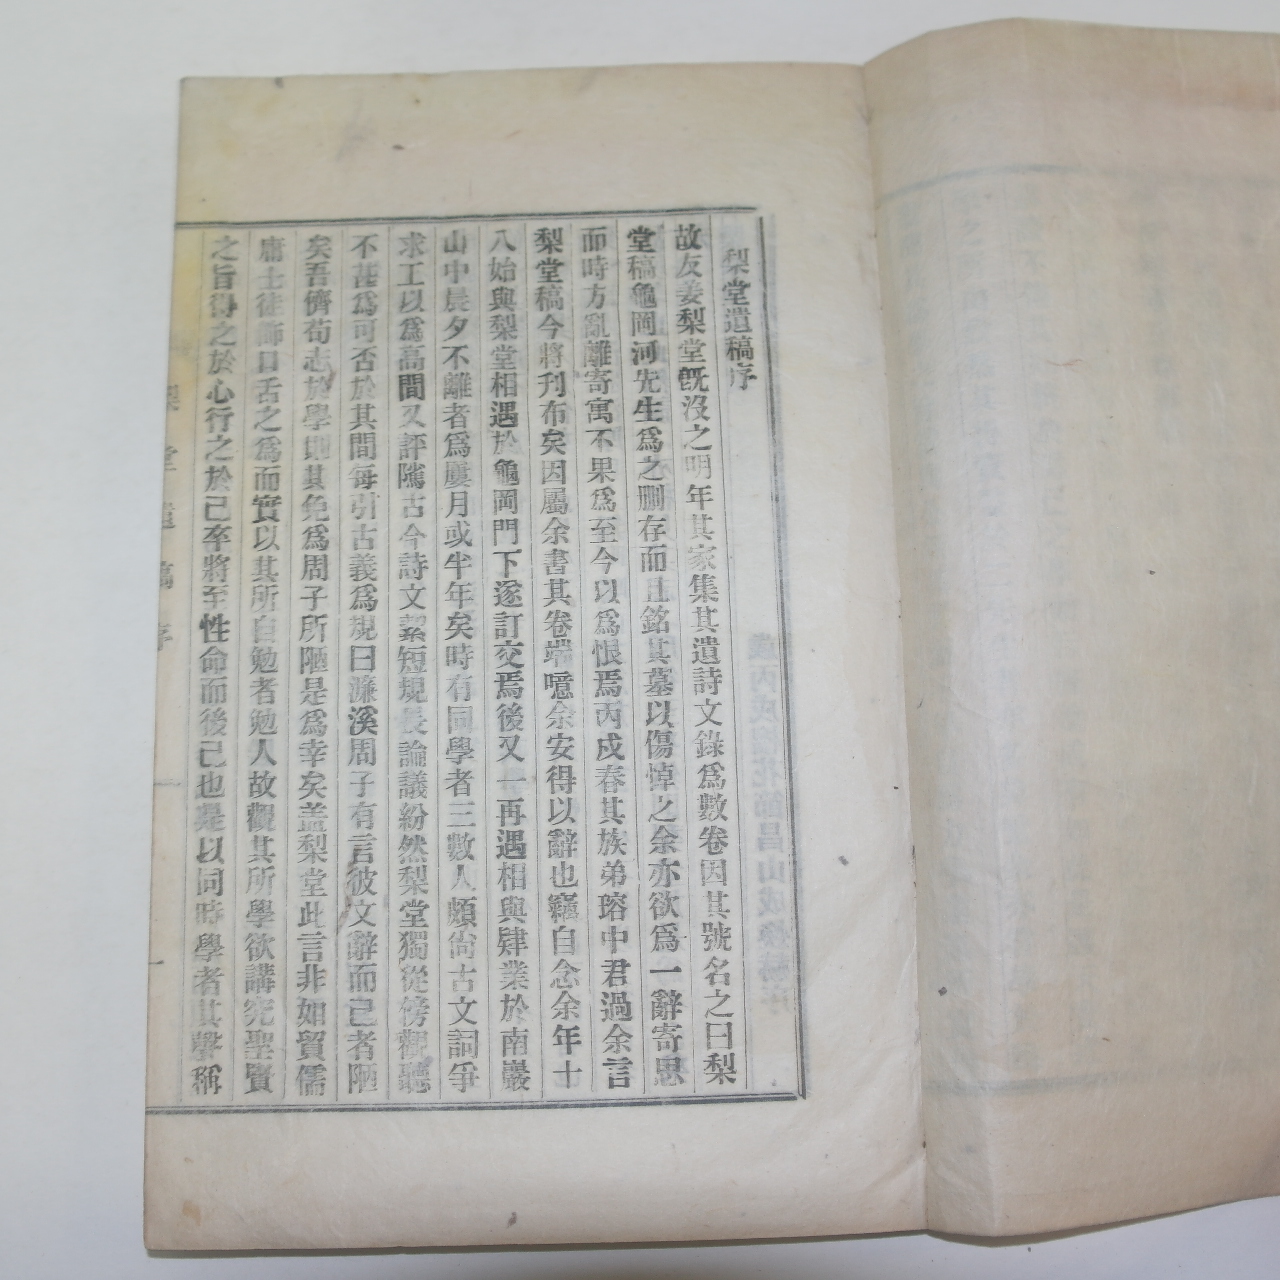 梨堂遺稿序
故友姜梨堂旣沒之明年其家集其遺詩文錄爲數卷因其號名之曰梨
堂稿龜岡河先生爲之刪存而且銘其墓以傷悼之余亦欲爲一辭寄思
而時方亂離寄寓不果爲至今以爲恨焉丙戌春其族弟瑢中君過余言
梨堂稿今將刋布矣因屬余書其卷端噫余安得以辭也竊自念余年十
八始與梨堂相遇於龜岡門下遂訂交焉後又一再遇相與肄業於南巖
山中晨夕不離者爲屢月或半年矣時有同學者三數人頗尙古文詞爭
求工以爲高間又評隲古今詩文絜短規長論議紛然梨堂獨從傍觀聽
不甚爲可否於其間每引古義爲規曰濂溪周子有言彼文辭而已者陋
矣吾儕苟志於學則其免爲周子所陋是爲幸矣盖梨堂此言非如貿儒
庸士徒飾口舌之爲而實以其所自勉者勉人故觀其所學欲講究聖賢
之旨得之於心行之於己卒將至性命而後已也是以同時學者其聲稱
梨堂遺稿序 一